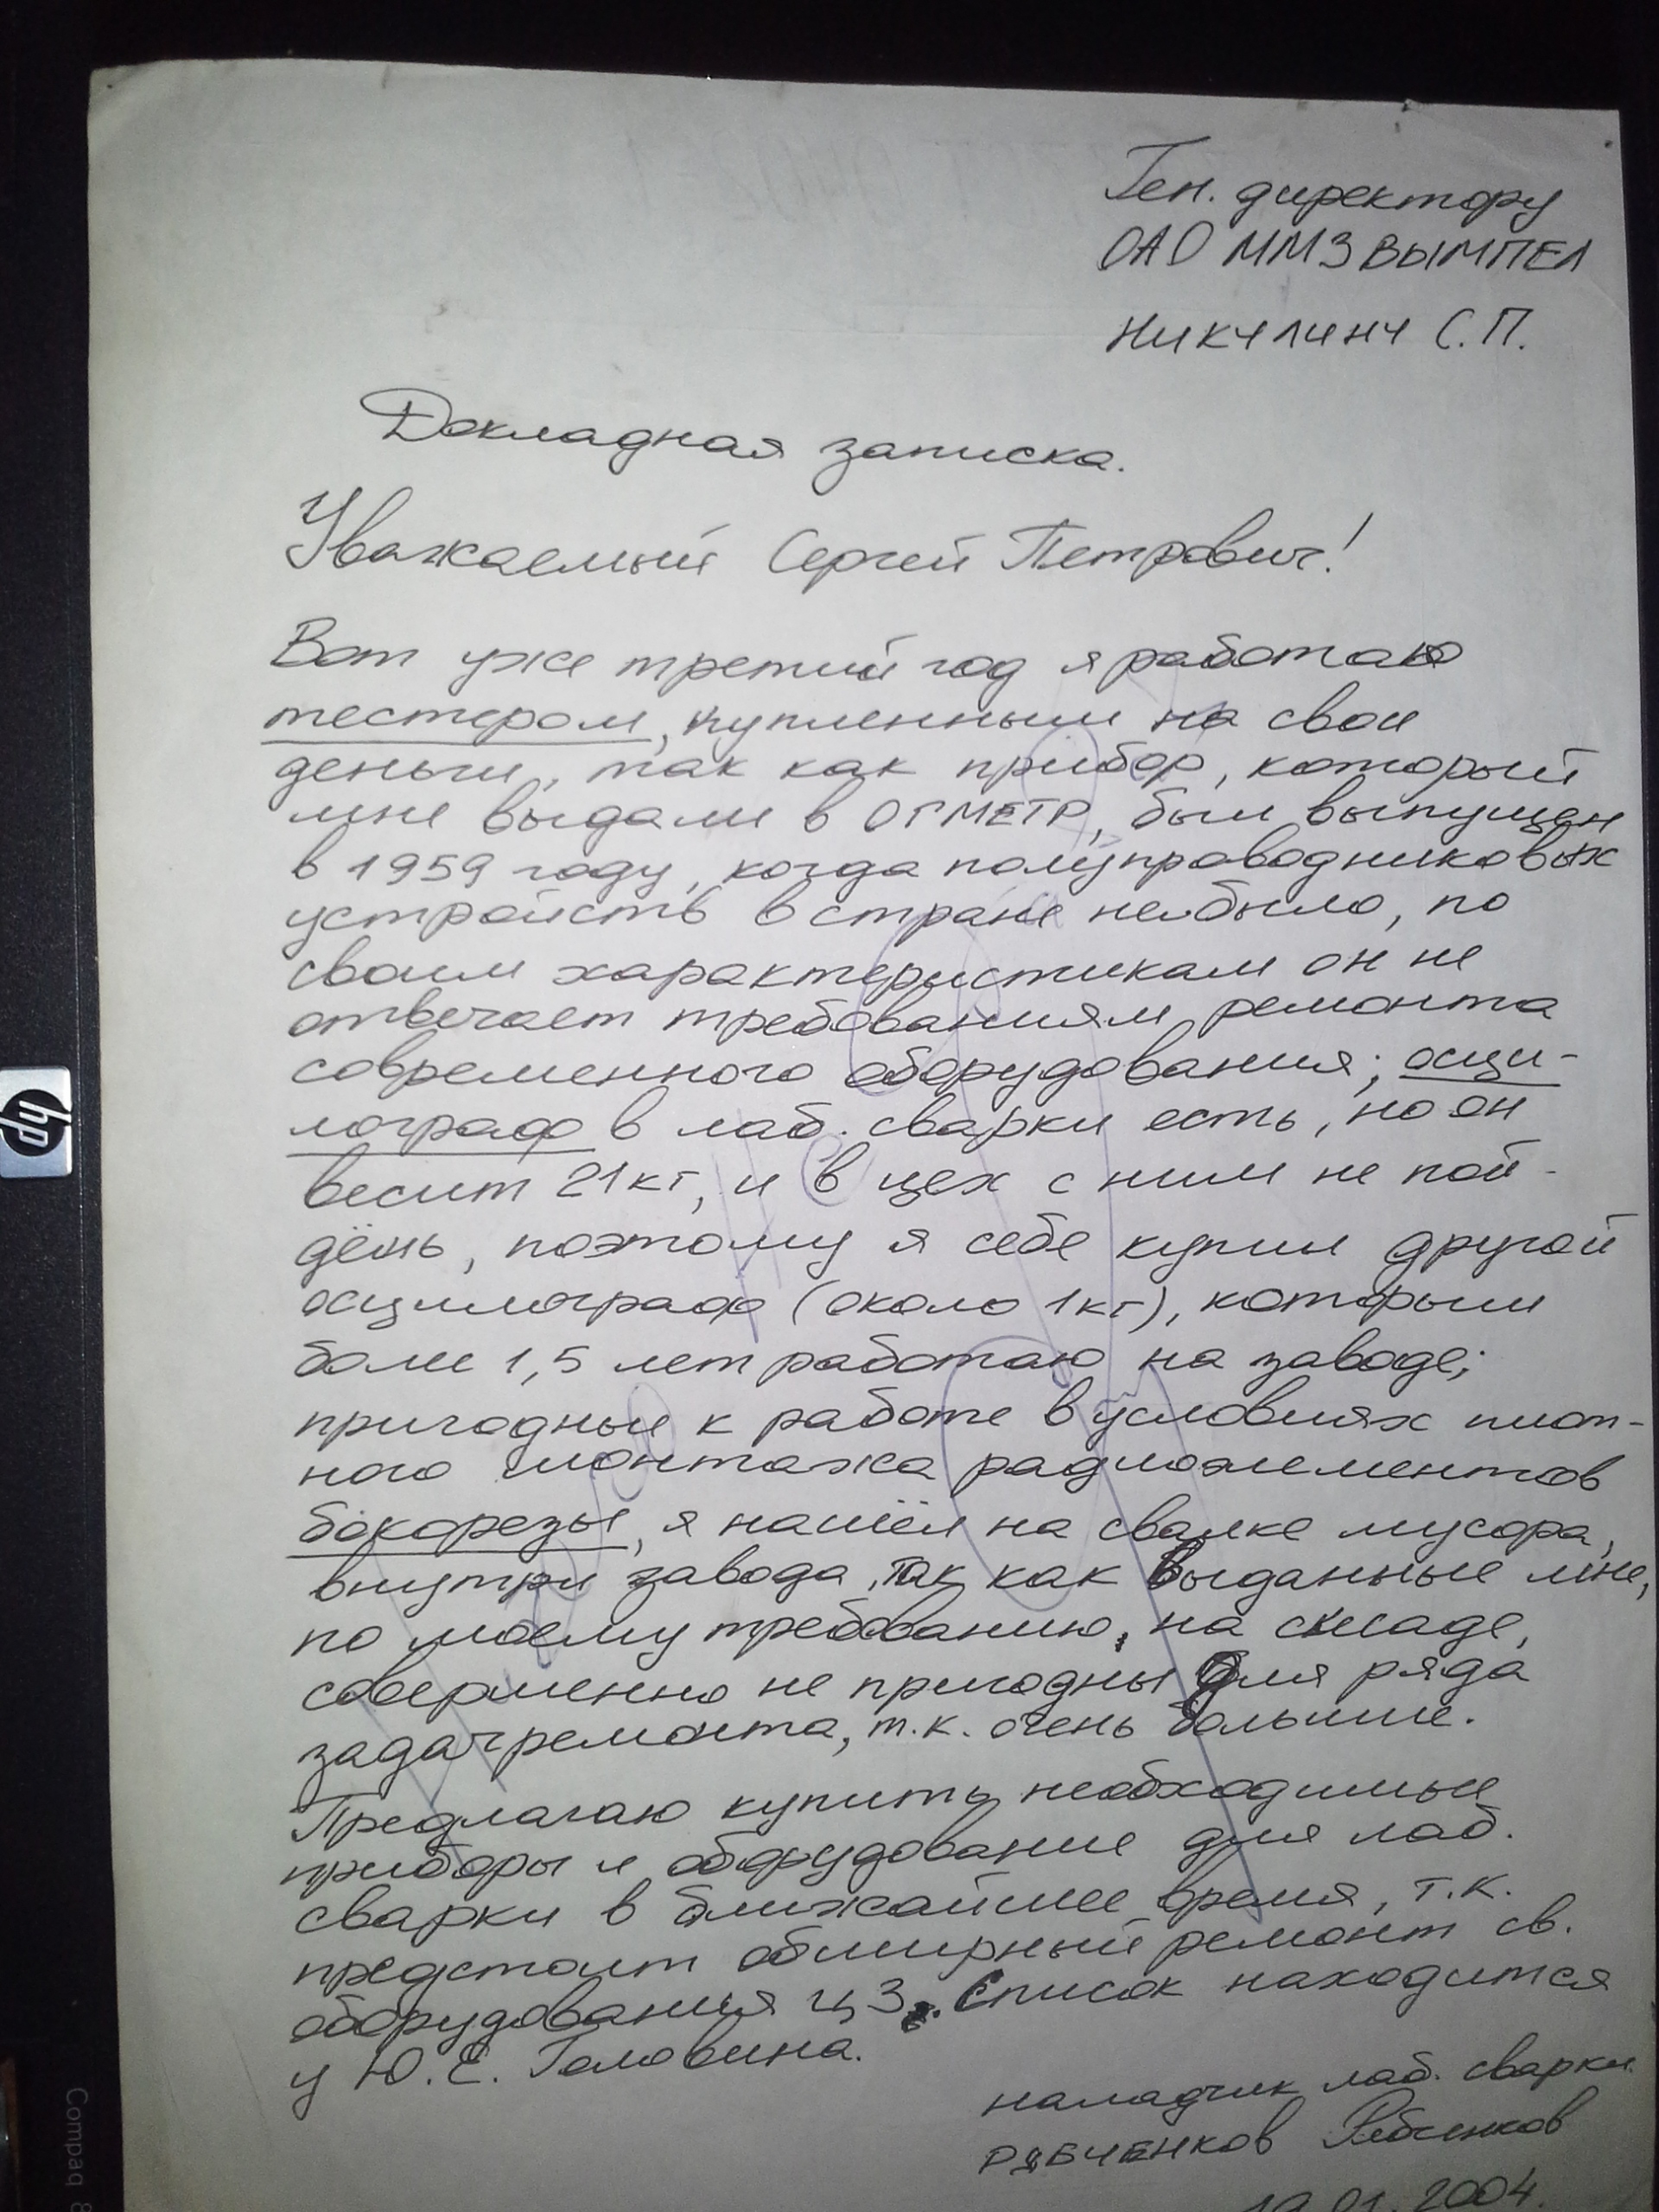 Ген. директору
ОАО ММЗ ВЫМПЕЛ
НИКУЛИНУ С.П.
Докладная записка.
Уважаемый Сергей Петрович!
Вот уже третий год я работаю
тестером, купленным на свои
деньги, так как прибор, который
мне выдали в ОГМЕТР, был выпущен
в 1959 году, когда полупроводниковых
устройств в стране не было, по
своим характеристикам он не
отвечает требованиям ремонта
современного оборудования; осци-
лограф в лаб. сварки есть, но он
весит 21кг, и в цех с ним не пой-
дёшь, поэтому я себе купил другой
осциллограф (около 1кг), которым
боле 1,5 лет работаю на заводе;
пригодные к работе в условиях плот-
ного монтажа радиоэлементов
бокорезы, я нашёл на свалке мусора,
внутри завода, так как выданные мне,
по моему требованию, на складе,
совершенно не пригодны для ряда
задач ремонта, т.к. очень большие.
Предлагаю купить необходимые
приборы и оборудование для лаб.
сварки в ближайшее время, т.к.
предстоит обширный ремонт св.
оборудования ц 3. Список находится
у Ю.Е. Головина.
наладчик лаб. сварки
РЯБЧЕНКОВ Рябченков
19.01.2004
hp
Compaq 8